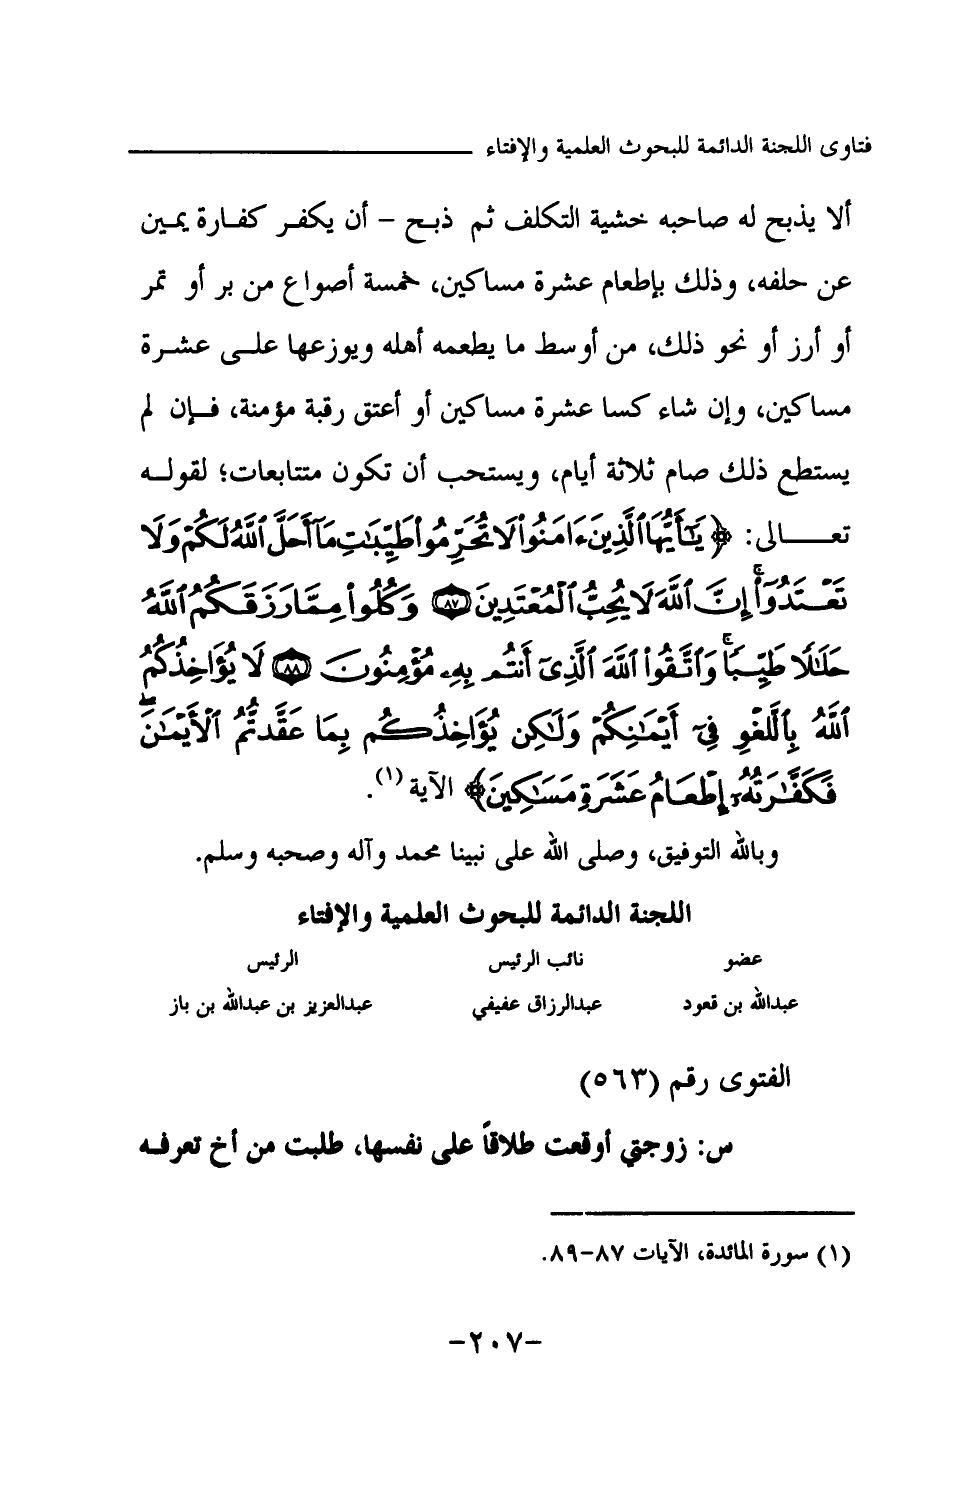 فتاوى اللجنة الدائمة للبحوث العلمية والإفتاء
ألا يذبح له صاحبه خشية التكلف ثم ذبح – أن يكفر كفارة يمين
عن حلفه، وذلك بإطعام عشرة مساكين، خمسة أصواع من بر أو تمر
أو أرز أو نحو ذلك، من أوسط ما يطعمه أهله ويوزعها على عشرة
مساكين، وإن شاء كسا عشرة مساكين أو أعتق رقبة مؤمنة، فإن لم
يستطع ذلك صام ثلاثة أيام، ويستحب أن تكون متتابعات؛ لقوله
تعالى: ﴿ يَٰٓأَيُّهَا ٱلَّذِينَ ءَامَنُوا۟ لَا تُحَرِّمُوا۟ طَيِّبَٰتِ مَآ أَحَلَّ ٱللَّهُ لَكُمْ وَلَا
تَعْتَدُوٓا۟ ۚ إِنَّ ٱللَّهَ لَا يُحِبُّ ٱلْمُعْتَدِينَ ٨٧ وَكُلُوا۟ مِمَّا رَزَقَكُمُ ٱللَّهُ
حَلَٰلًا طَيِّبًا ۚ وَٱتَّقُوا۟ ٱللَّهَ ٱلَّذِىٓ أَنتُم بِهِۦ مُؤْمِنُونَ ٨٨ لَا يُؤَاخِذُكُمُ
ٱللَّهُ بِٱللَّغْوِ فِىٓ أَيْمَٰنِكُمْ وَلَٰكِن يُؤَاخِذُكُم بِمَا عَقَّدتُّمُ ٱلْأَيْمَٰنَ ۖ
فَكَفَّٰرَتُهُۥٓ إِطْعَامُ عَشَرَةِ مَسَٰكِينَ﴾ الآية (١).
وبالله التوفيق، وصلى الله على نبينا محمد وآله وصحبه وسلم.
اللجنة الدائمة للبحوث العلمية والإفتاء
عضو نائب الرئيس الرئيس
عبدالله بن قعود عبدالرزاق عفيفي عبدالعزيز بن عبدالله بن باز
الفتوى رقم (٥٦٣)
س: زوجتي أوقعت طلاقاً على نفسها، طلبت من أخ تعرفه
(١) سورة المائدة، الآيات ٨٧-٨٩.
-٢٠٧-